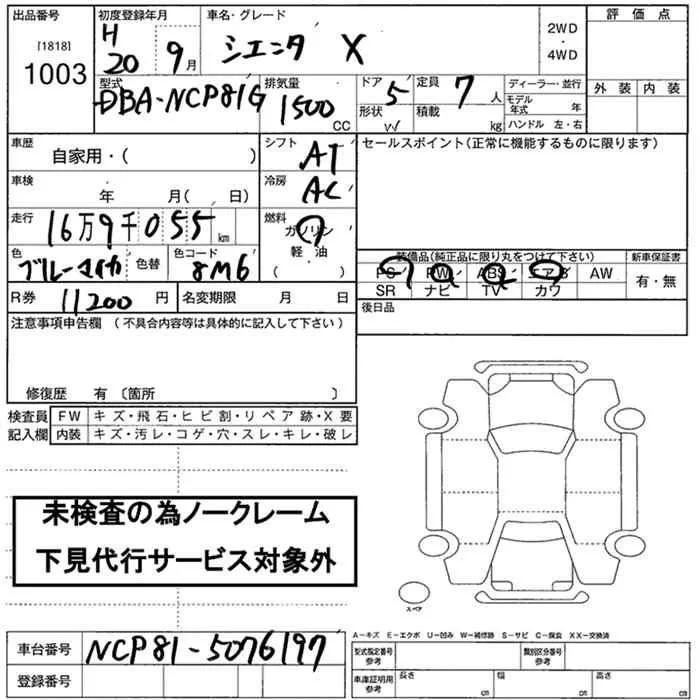 出品番号 初度登録年月 車名・グレード 評価点
[1818] 1003 H20 9月 シエンタ X 2WD・4WD
外装 内装
型式 DBA-NCP81G 排気量 1500 CC ドア 5 形状 W 定員 7人 積載 kg ディーラー・並行 モデル年式 年 ハンドル 左・右
車歴 自家用・( ) シフト AT セールスポイント(正常に機能するものに限ります)
車検 年 月( 日) 冷房 AC
走行 16万9千055 km 燃料 ガソリン 軽油 ( )
色 ブルーマイカ 色替 色コード 8M6
装備品(純正品に限り丸をつけて下さい) 新車保証書
PS PW ABS エアB AW 有・無
SR ナビ TV カワ
R券 11200円 名変期限 月 日 後日品
注意事項申告欄 (不具合内容等は具体的に記入して下さい)
修復歴 有 〔箇所 〕
検査員記入欄 FW キズ・飛石・ヒビ割・リペア跡・X要
内装 キズ・汚レ・コゲ・穴・スレ・キレ・破レ
未検査の為ノークレーム
下見代行サービス対象外
スペア
A-キズ E-エクボ U-凹み W-補修跡 S-サビ C-腐食 XX-交換済
車台番号 NCP81-5076197
登録番号
型式指定番号 参考 類別区分番号 参考
車庫証明用 参考 長さ cm 幅 cm 高さ cm